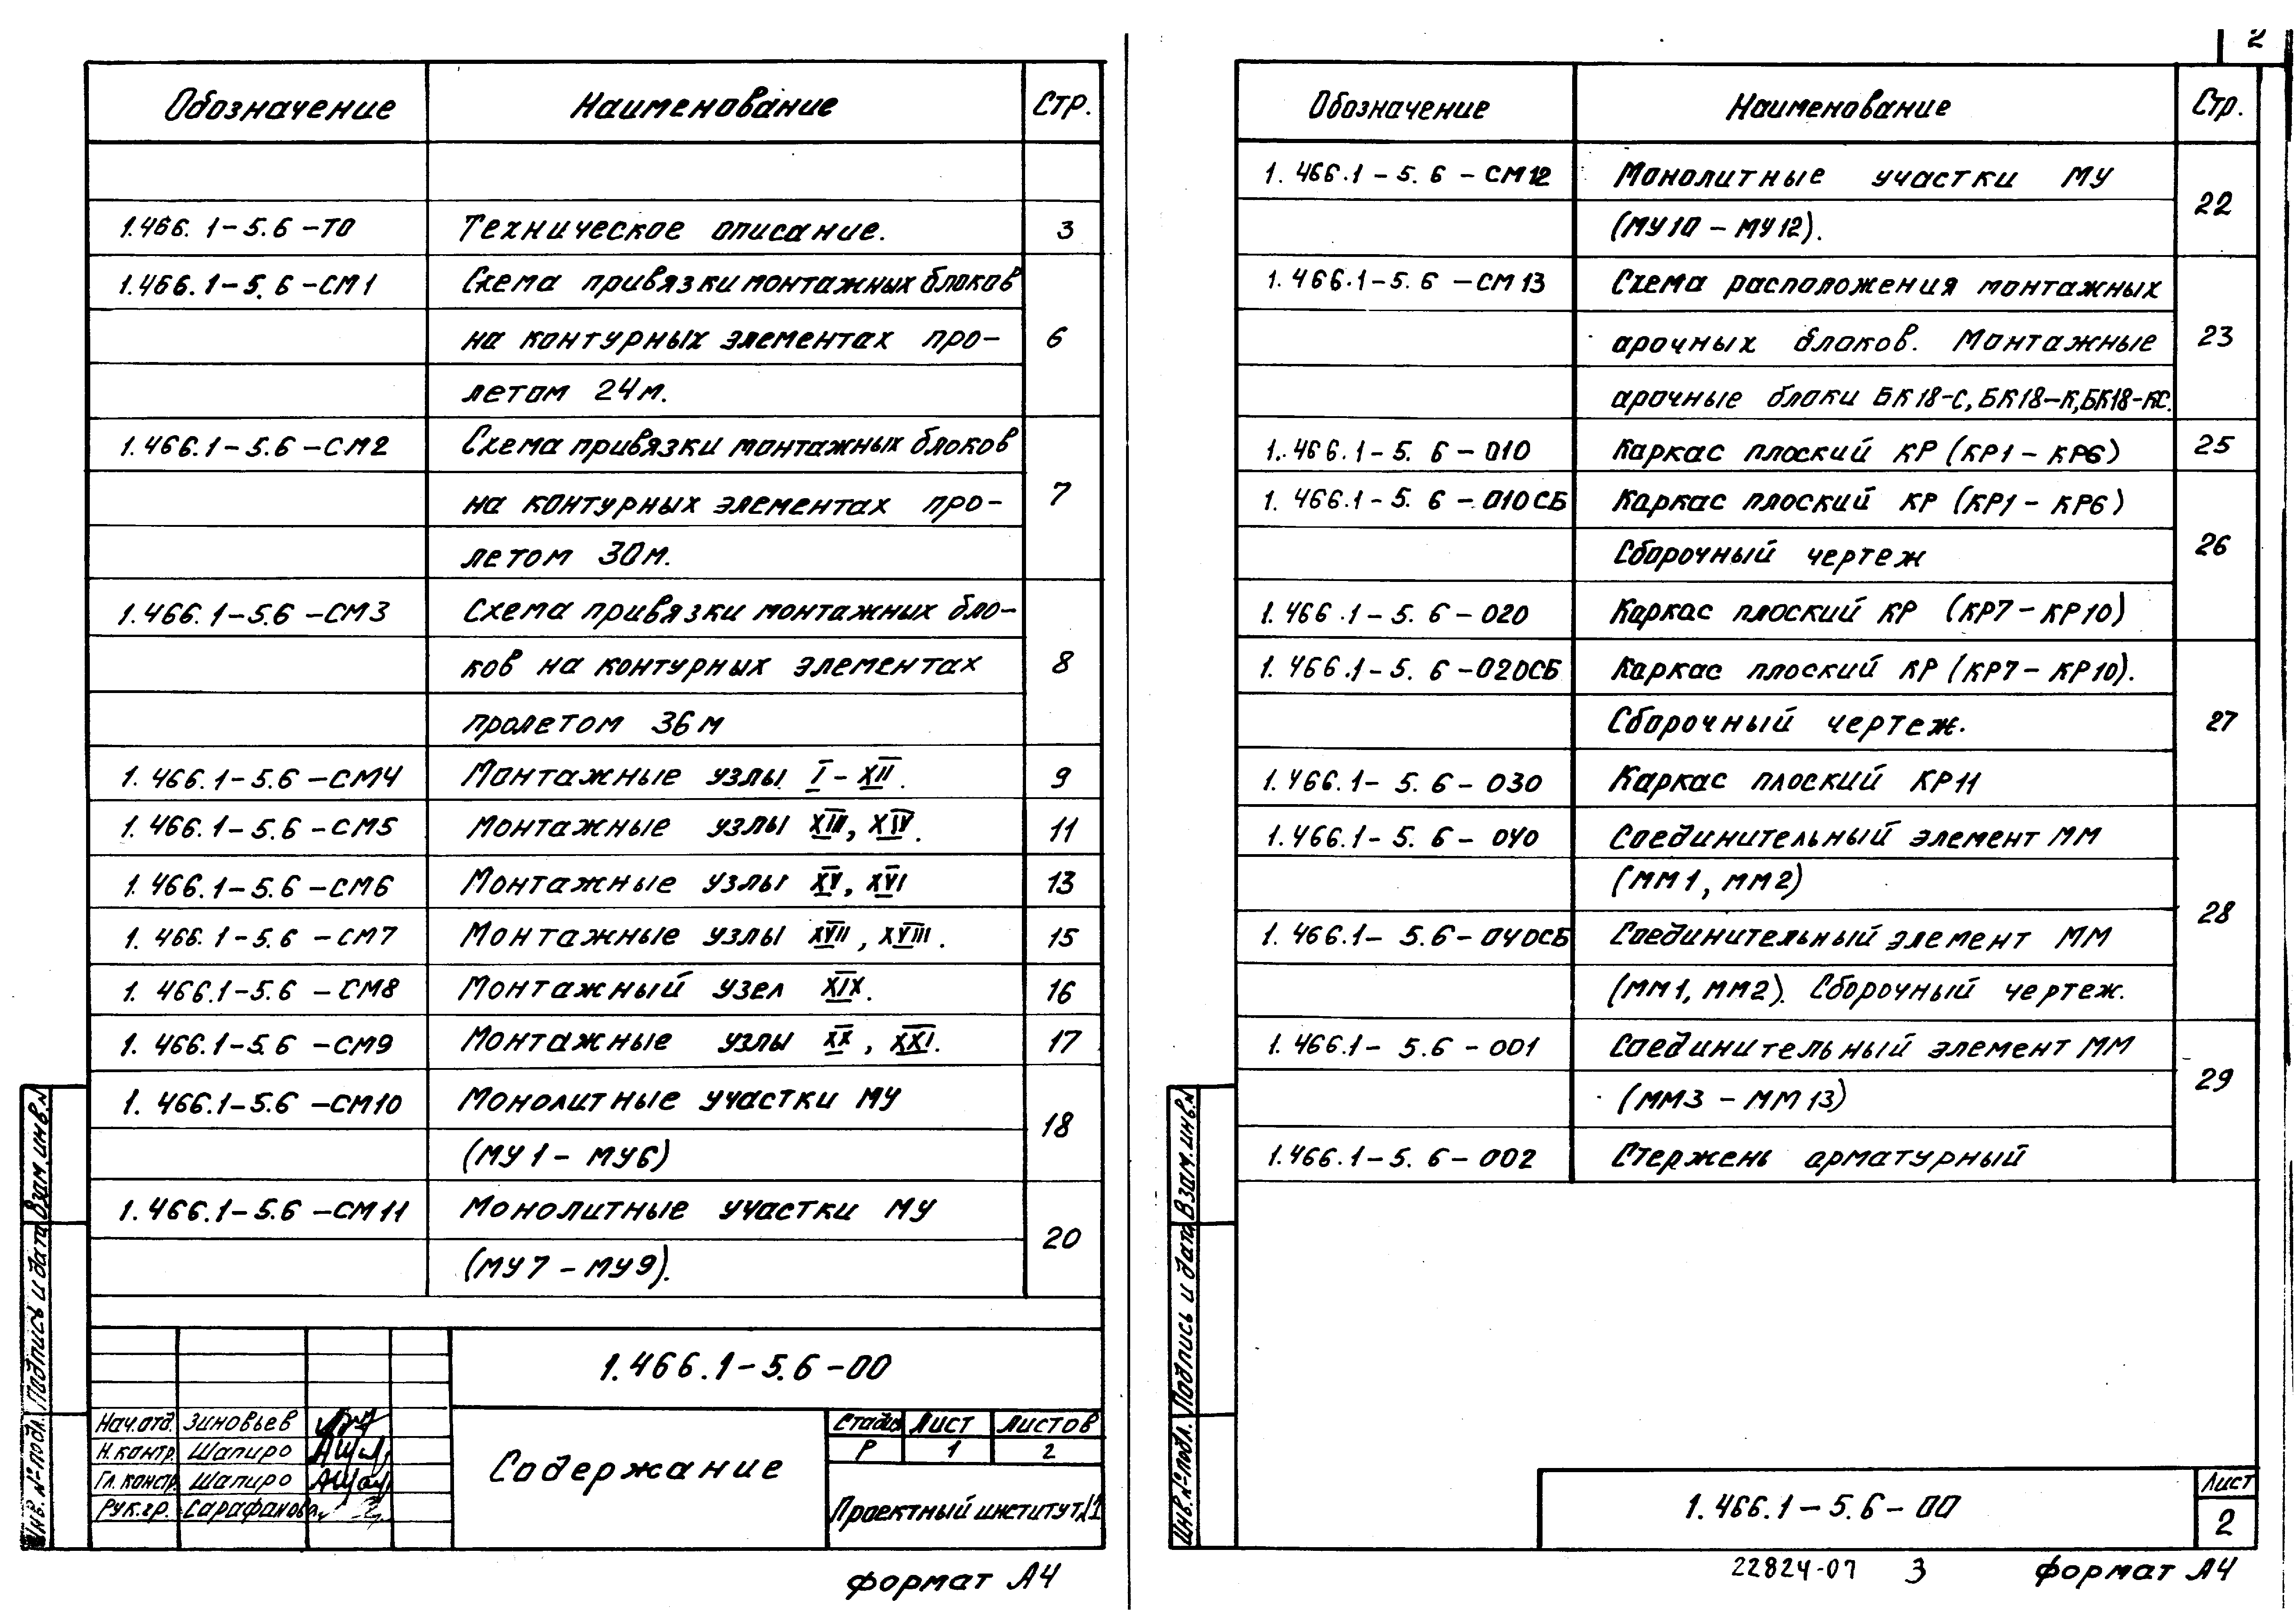 Обозначение Наименование Стр.
1.466.1-5.6-ТО Техническое описание. 3
1.466.1-5.6-СМ1 Схема привязки монтажных блоков
на контурных элементах про- 6
летом 24м.
1.466.1-5.6-СМ2 Схема привязки монтажных блоков
на контурных элементах про- 7
летом 30м.
1.466.1-5.6-СМ3 Схема привязки монтажных бло-
ков на контурных элементах 8
пролетом 36м
1.466.1-5.6-СМ4 Монтажные узлы I-XII. 9
1.466.1-5.6-СМ5 Монтажные узлы XIII, XIV. 11
1.466.1-5.6-СМ6 Монтажные узлы XV, XVI 13
1.466.1-5.6-СМ7 Монтажные узлы XVII, XVIII. 15
1.466.1-5.6-СМ8 Монтажный узел XIX. 16
1.466.1-5.6-СМ9 Монтажные узлы XX, XXI. 17
1.466.1-5.6-СМ10 Монолитные участки МУ
(МУ1-МУ6) 18
1.466.1-5.6-СМ11 Монолитные участки МУ
(МУ7-МУ9). 20
1.466.1-5.6-00
Нач.отд. Зиновьев
Н.контр. Шапиро
Гл. констр. Шапиро
Рук.гр. Сарафанова
Содержание
Стадия Лист Листов
Р 1 2
Проектный институт №1
Взам.инв.N
Подпись и дата
Инв.№подл.
формат А4
2
Обозначение Наименование Стр.
1.466.1-5.6-СМ12 Монолитные участки МУ
(МУ10-МУ12). 22
1.466.1-5.6-СМ13 Схема расположения монтажных
арочных блоков. Монтажные 23
арочные блоки БК18-С, БК18-К, БК18-КС.
1.466.1-5.6-010 Каркас плоский КР (КР1-КР6) 25
1.466.1-5.6-010СБ Каркас плоский КР (КР1-КР6)
Сборочный чертеж 26
1.466.1-5.6-020 Каркас плоский КР (КР7-КР10)
1.466.1-5.6-020СБ Каркас плоский КР (КР7-КР10).
Сборочный чертеж. 27
1.466.1-5.6-030 Каркас плоский КР11
1.466.1-5.6-040 Соединительный элемент ММ
(ММ1, ММ2)
28
1.466.1-5.6-040СБ Соединительный элемент ММ
(ММ1, ММ2). Сборочный чертеж.
1.466.1-5.6-001 Соединительный элемент ММ
(ММ3-ММ13) 29
1.466.1-5.6-002 Стержень арматурный
Взам.инв.N
Подпись и дата
Инв.№подл.
1.466.1-5.6-00
Лист
2
22824-07 3 формат А4